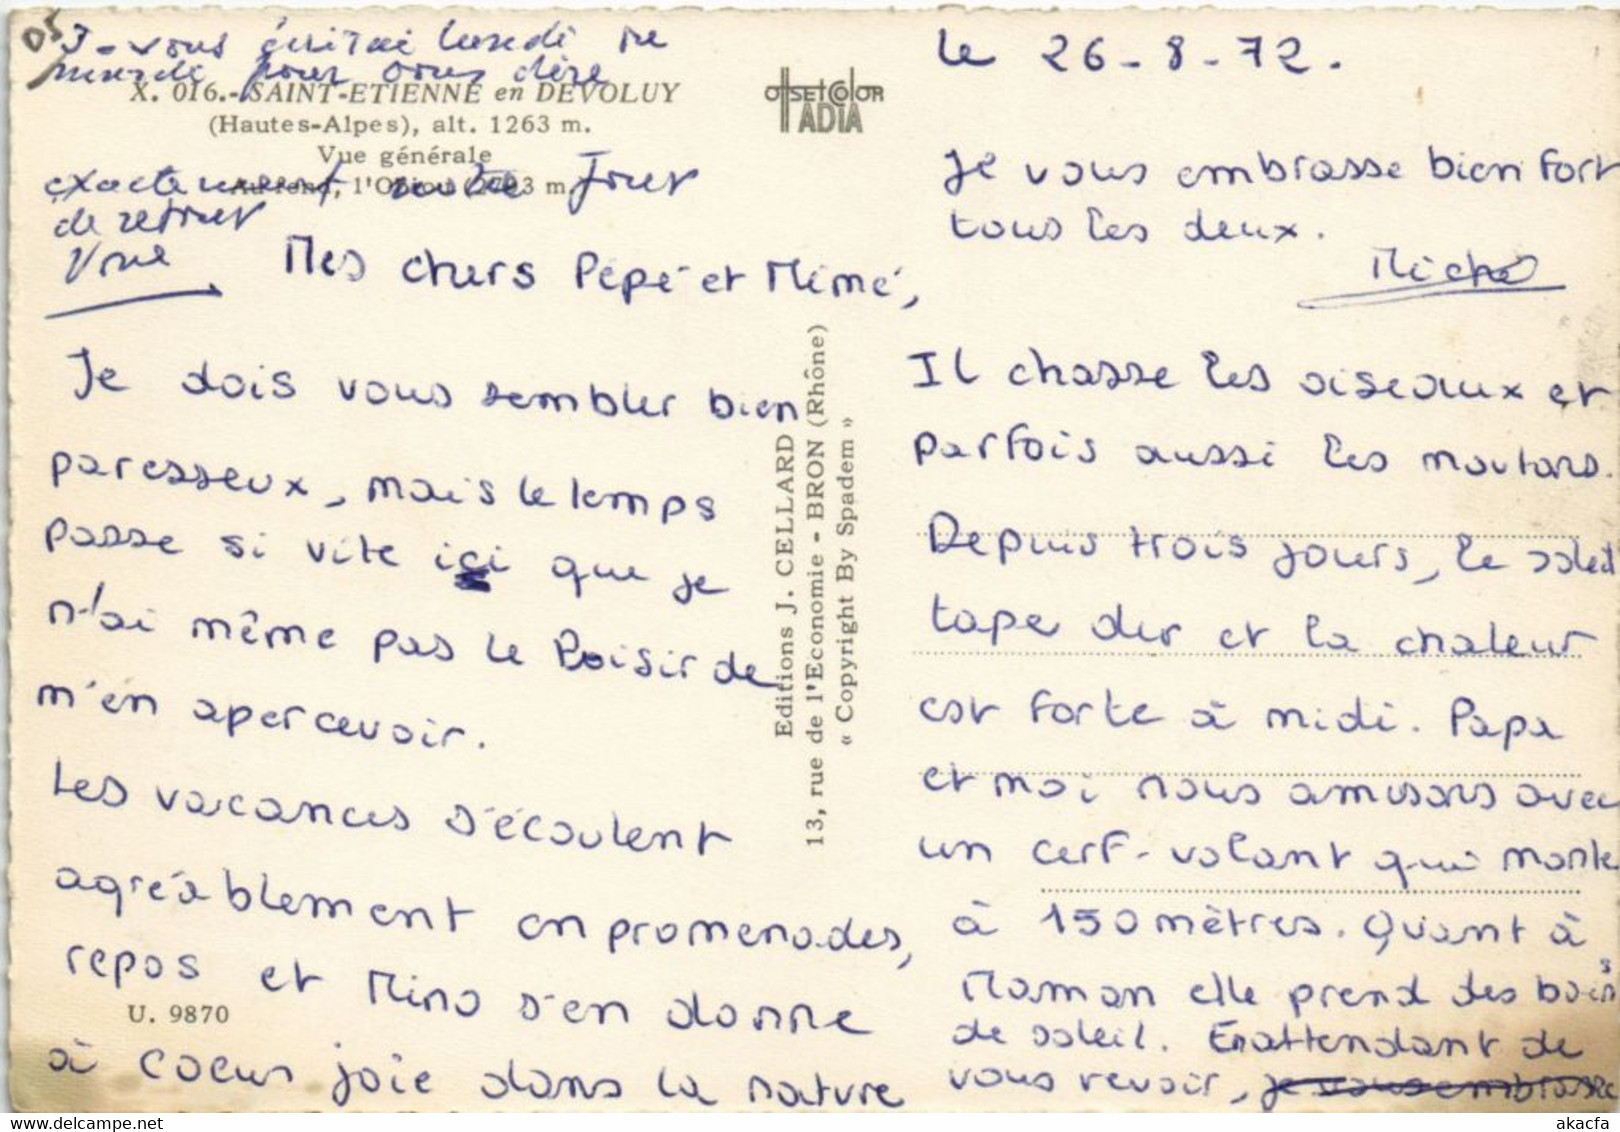 05
J-vous écrirai lundi ou
pour vous dire
X. 016.- SAINT-ETIENNE en DEVOLUY
(Hautes-Alpes), alt. 1263 m.
Vue générale
Au fond, l'Obiou, 2793 m.
exactement notre Jour
de retour
Mes chers Pépé et Mémé,
Je dois vous sembler bien
paresseux, mais le temps
passe si vite ici que je
n'ai même pas le loisir de
m'en apercevoir.
Les vacances s'écoulent
agréablement en promenades,
repos et Mino s'en donne
U. 9870
à coeur joie dans la nature
OFFSETCOLOR
ADIA
Editions J. CELLARD
13, rue de l'Economie - BRON (Rhône)
« Copyright By Spadem »
le 26-8-72.
Je vous embrasse bien fort
tous les deux.
Miché
Il chasse les oiseaux et
parfois aussi les moutons.
Depuis trois jours, le soleil
tape dur et la chaleur
est forte à midi. Papa
et moi nous amusons avec
un cerf-volant qui monte
à 150 mètres. Quant à
Maman elle prend des bains
de soleil. En attendant de
vous revoir, je vous embrasse
akacfa
www.delcampe.net